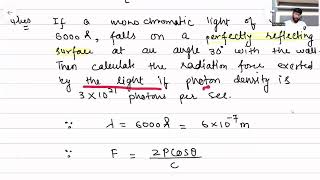 Ques If a mono chromatic light of λ
6000Å, falls on a perfectly reflecting
surface at an angle 30° with the wall.
Then calculate the radiation force exerted
by the light if photon density is
3×10²¹ photons per sec.
∵ λ = 6000Å = 6×10⁻⁷m
∵ F = 2PCosθ / c